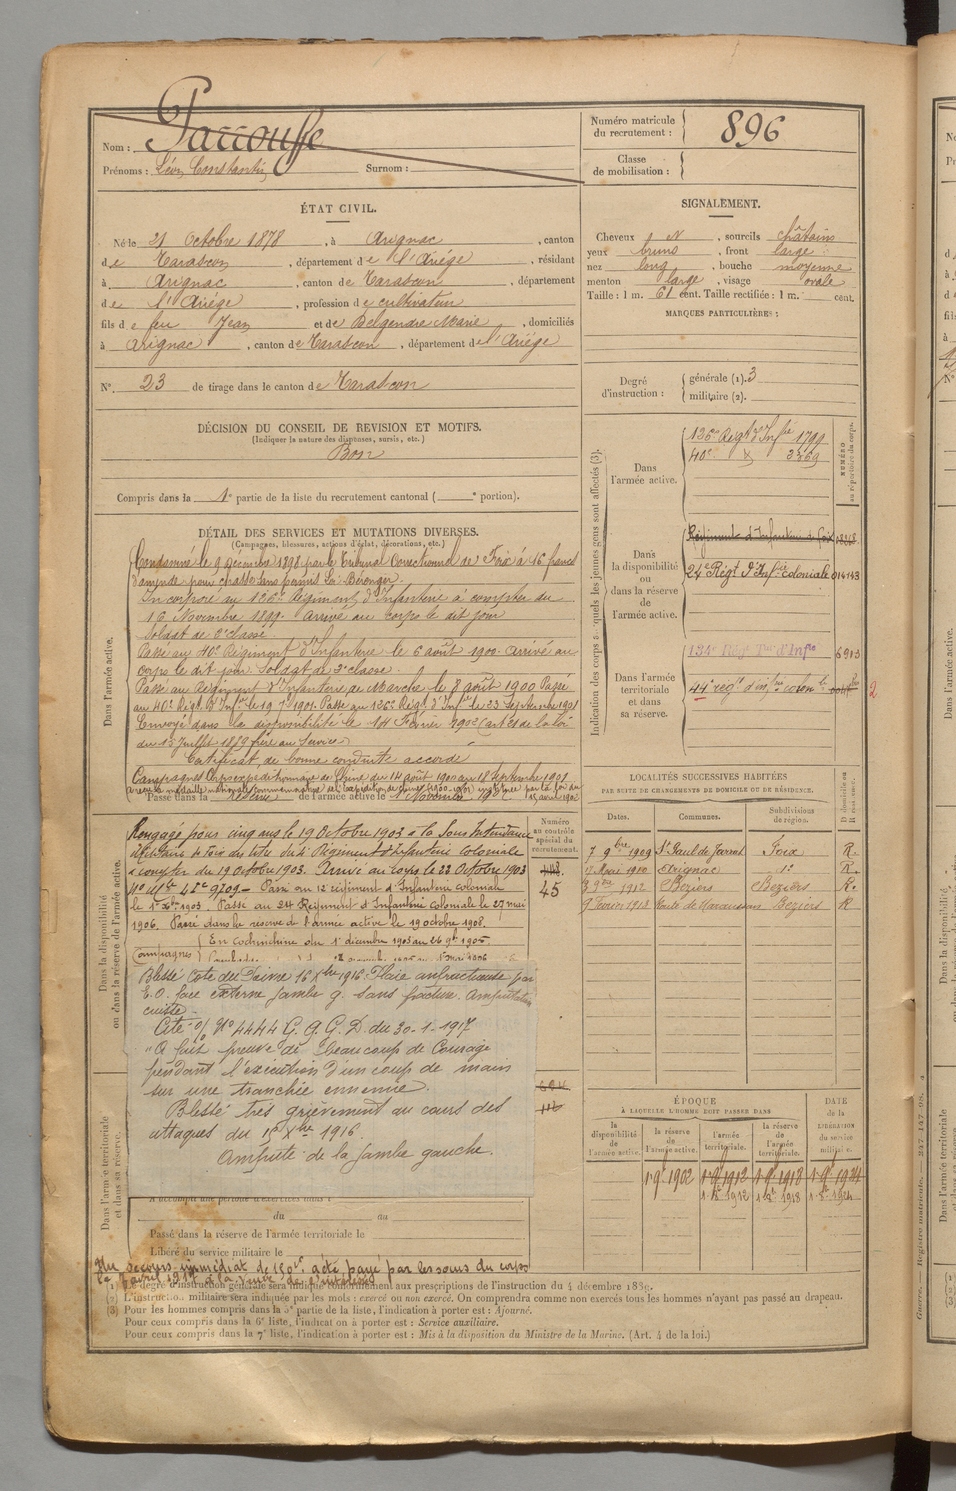 Nom : Parrouffe
Prénoms : Léon Constantin Surnom :
Numéro matricule du recrutement : 896
Classe de mobilisation :
ÉTAT CIVIL.
Né le 21 Octobre 1878, à Arignac, canton
de Tarascon, département de l'Ariège, résidant
à Arignac, canton de Tarascon, département
de l'Ariège, profession de cultivateur
fils de feu Jean et de Belgendre Marie, domiciliés
à Arignac, canton de Tarascon, département de l'Ariège
N° 23 de tirage dans le canton de Tarascon
DÉCISION DU CONSEIL DE REVISION ET MOTIFS.
(Indiquer la nature des dispenses, sursis, etc.)
Bon
Compris dans la 1e partie de la liste du recrutement cantonal ( e portion).
SIGNALEMENT.
Cheveux N, sourcils châtains
yeux bruns, front large
nez long, bouche moyenne
menton large, visage ovale
Taille : 1 m. 61 cent. Taille rectifiée : 1 m. cent.
MARQUES PARTICULIÈRES :
Degré d'instruction : générale (1). 3
militaire (2).
DÉTAIL DES SERVICES ET MUTATIONS DIVERSES.
(Campagnes, blessures, actions d'éclat, décorations, etc.)
Dans l'armée active.
Condamné le 9 décembre 1898 par le Tribunal Correctionnel de Foix à 16 francs
d'amende pour chasse sans permis Loi Bérenger.
Incorporé au 126e Régiment d'Infanterie à compter du
16 Novembre 1899. Arrivé au corps le dit jour
Soldat de 2e classe.
Passé au 40e Régiment d'Infanterie le 6 août 1900. Arrivé au
corps le dit jour Soldat de 2e classe.
Passé au Régiment d'Infanterie de Marche le 8 août 1900 Passé
au 40e Régt d'Infrie le 19 7 1901. Passé au 126e Régt d'Infrie le 23 Septembre 1901
Envoyé dans la disponibilité le 14 Février 1902 (art de la loi
du 15 Juillet 1889 frère au service)
Certificat de bonne conduite accordé
Campagnes Corps expéditionnaire de Chine du 14 août 1900 au 18 Septembre 1901
médaille nationale commémorative de l'Expédition de Chine (1900-1901) instituée par la loi du 15 avril 1902
Passé dans la réserve de l'armée active le 1 Novembre 1902
Dans la disponibilité ou dans la réserve de l'armée active.
Numéro au contrôle spécial du recrutement.
45
Rengagé pour cinq ans le 19 Octobre 1903 à la Sous Intendance
Militaire de Foix au titre du 4e Régiment d'Infanterie coloniale
à compter du 19 octobre 1903. Arrivé au corps le 22 Octobre 1903
N° Mle 9709 - Passé au 12 régiment d'Infanterie coloniale
le 1er Xbre 1903 Passé au 24 Régiment d'Infanterie coloniale le 27 mai
1906. Passé dans la réserve de l'armée active le 19 octobre 1908.
Campagnes En Cochinchine du 1er décembre 1903 au 26 9b 1905
Blessé Cote du Poivre 16 Xbre 1916. Plaie anfractueuse par
E.O. face externe jambe g. sans fracture. Amputation
cuisse.
Cité O/ N° 4444 G.Q.G. D. du 30-1-1917
"A fait preuve de beaucoup de Courage
pendant l'exécution d'un coup de main
sur une tranchée ennemie.
Blessé très grièvement au cours des
attaques du 15 Xbre 1916.
Amputé de la jambe gauche.
Dans l'armée territoriale et dans sa réserve.
694
112
du au
Passé dans la réserve de l'armée territoriale le
Libéré du service militaire le
Un secours immédiat de 150f a été payé par les soins du corps
le 7 avril 1917 à la veuve de
Indication des corps auxquels les jeunes gens sont affectés (3).
NUMÉRO au répertoire du corps.
Dans l'armée active.
126e Régt d'Infrie 1799
40e 3269
Dans la disponibilité ou dans la réserve de l'armée active.
Régiment d'Infanterie de Foix
24e Régt d'Infrie coloniale 014143
Dans l'armée territoriale et dans sa réserve.
134e Régt Tal d'Infie 6913
44e régt d'infrie colonle
2
LOCALITÉS SUCCESSIVES HABITÉES
PAR SUITE DE CHANGEMENTS DE DOMICILE OU DE RÉSIDENCE.
Dates. Communes. Subdivisions de région. D domicile ou R résidence.
7 9bre 1909 St Paul de Jarrat Foix R.
7 Mai 1910 Arignac do R.
3 9bre 1912 Béziers Béziers R.
9 Février 1913 Route de Maraussan Béziers R
ÉPOQUE
À LAQUELLE L'HOMME DOIT PASSER DANS
DATE de la LIBÉRATION du service militaire.
la disponibilité de l'armée active.
la réserve de l'armée active.
l'armée territoriale.
la réserve de l'armée territoriale.
1 9b 1902 1 9b 1912 1 9b 1918 1 9b 1924
1 Xb 1912 1 Xb 1918 1 Xb 1924
(1) Le degré d'instruction générale sera indiqué conformément aux prescriptions de l'instruction du 4 décembre 1889.
(2) L'instruction militaire sera indiquée par les mots : exercé ou non exercé. On comprendra comme non exercés tous les hommes n'ayant pas passé au drapeau.
(3) Pour les hommes compris dans la 5e partie de la liste, l'indication à porter est : Ajourné.
Pour ceux compris dans la 6e liste, l'indication à porter est : Service auxiliaire.
Pour ceux compris dans la 7e liste, l'indication à porter est : Mis à la disposition du Ministre de la Marine. (Art. 4 de la loi.)
Guerre. — Registre matricule. — 237-147-98.